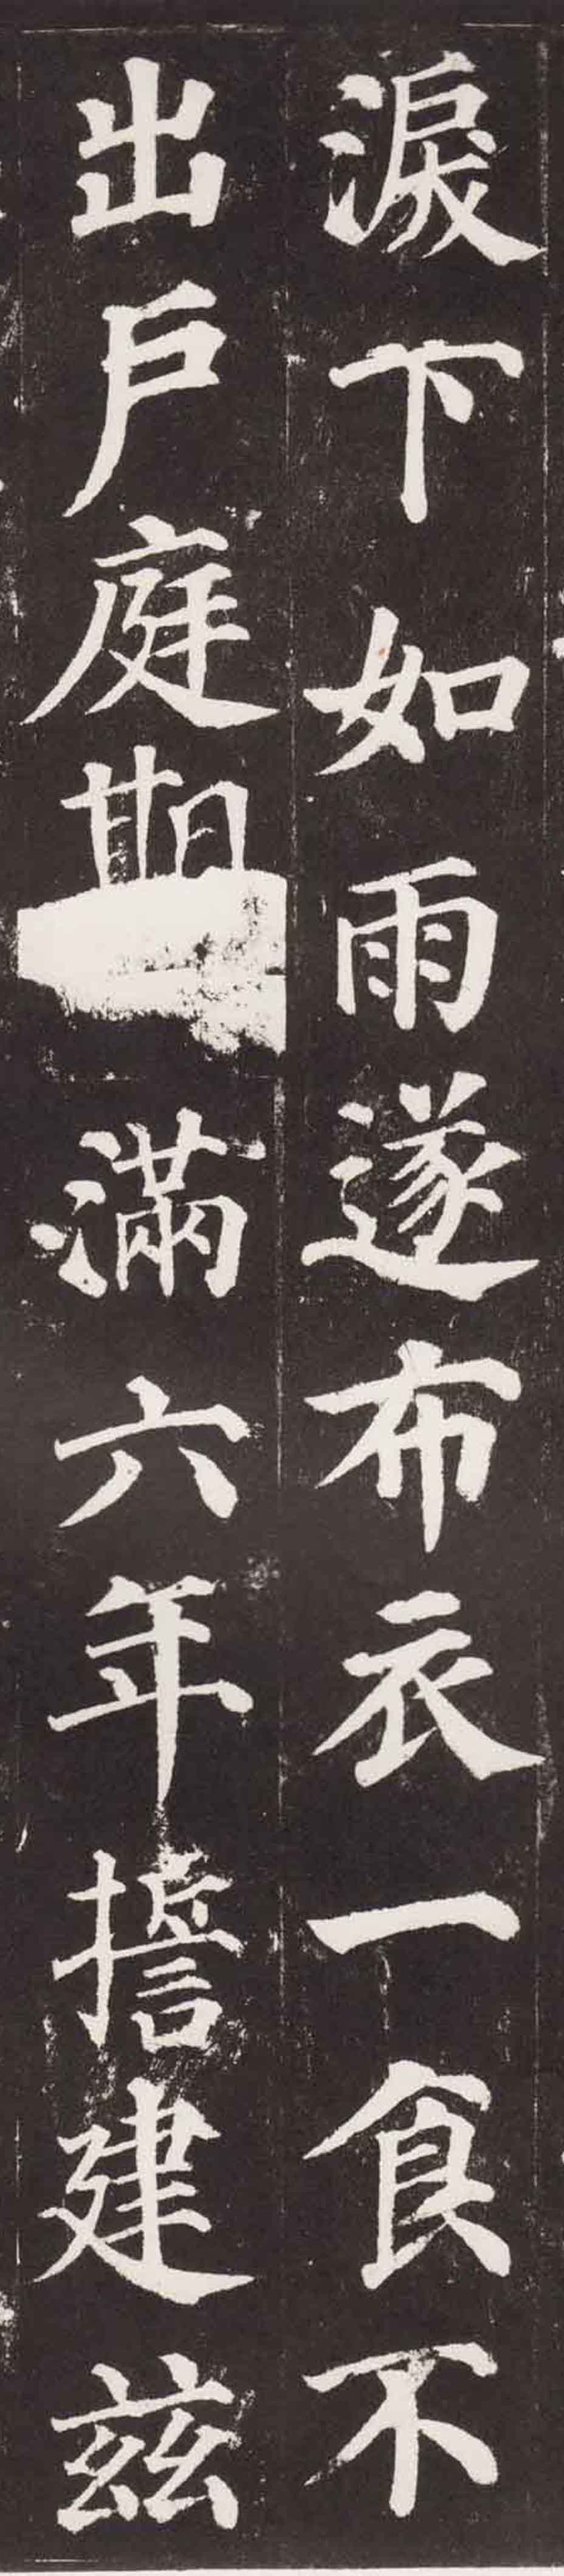 淚下如雨遂布衣一食不
出戶庭期滿六年擔建茲